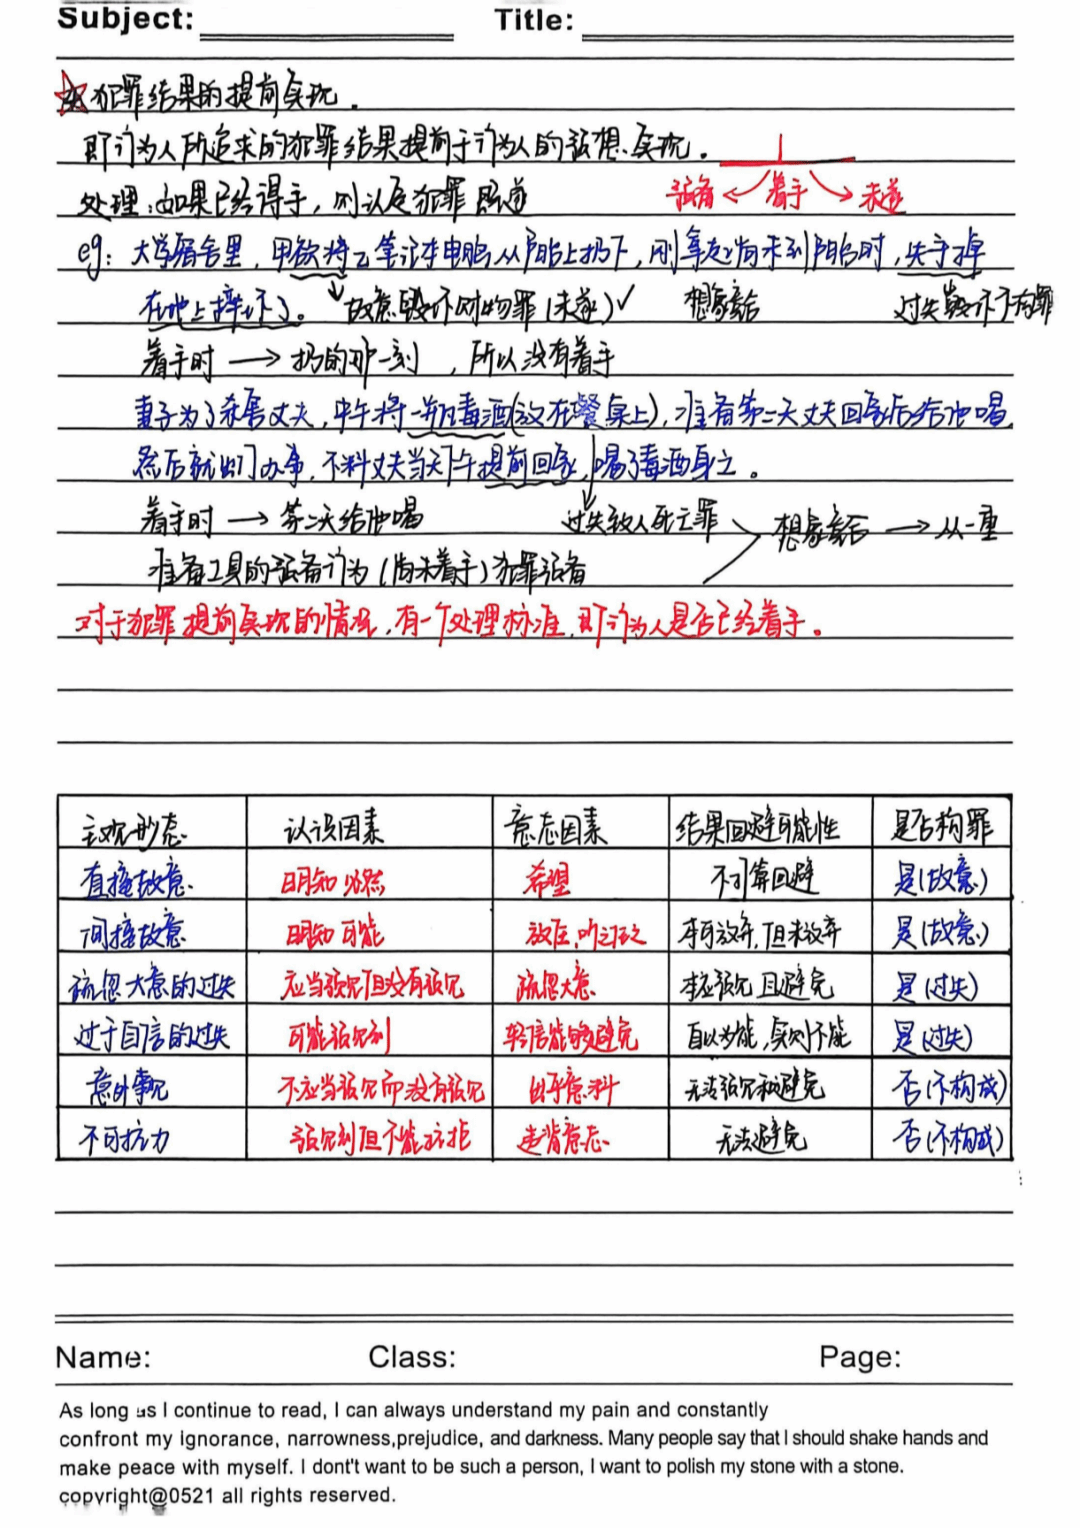 Subject: Title:
犯罪结果的提前实现.
即行为人所追求的犯罪结果提前于行为人的预想实现.
处理:如果已经得手,则认定犯罪既遂 预备 着手 未遂
eg: 大学宿舍里,甲欲将乙笔记本电脑从阳台上扔下,刚拿起尚未到阳台时,失手掉
在地上摔坏了。 故意毁坏财物罪(未遂)✓ 想象竞合 过失毁坏不构罪
着手时 → 扔的那一刻,所以没有着手
妻子为了杀害丈夫,中午将一瓶毒酒(放在餐桌上),准备第二天丈夫回家后给他喝,
然后就出门办事,不料丈夫当天下午提前回家,喝了毒酒身亡。
着手时 → 第二天给他喝 过失致人死亡罪 想象竞合 → 从一重
准备工具的预备行为(尚未着手)犯罪预备
对于犯罪提前实现的情况,有一个处理标准,即行为人是否已经着手。
主观形态 认识因素 意志因素 结果回避可能性 是否构罪
直接故意 明知必然 希望 不打算回避 是(故意)
间接故意 明知可能 放任,听之任之 本可放弃,但未放弃 是(故意)
疏忽大意的过失 应当预见但没有预见 疏忽大意 本应预见且避免 是(过失)
过于自信的过失 可能预见到 轻信能够避免 自以为能,实则不能 是(过失)
意外事件 不应当预见而没有预见 出乎意料 无法预见和避免 否(不构成)
不可抗力 预见到但不能抗拒 违背意志 无法避免 否(不构成)
Name: Class: Page:
As long as I continue to read, I can always understand my pain and constantly
confront my ignorance, narrowness,prejudice, and darkness. Many people say that I should shake hands and
make peace with myself. I dont't want to be such a person, I want to polish my stone with a stone.
copyright@0521 all rights reserved.